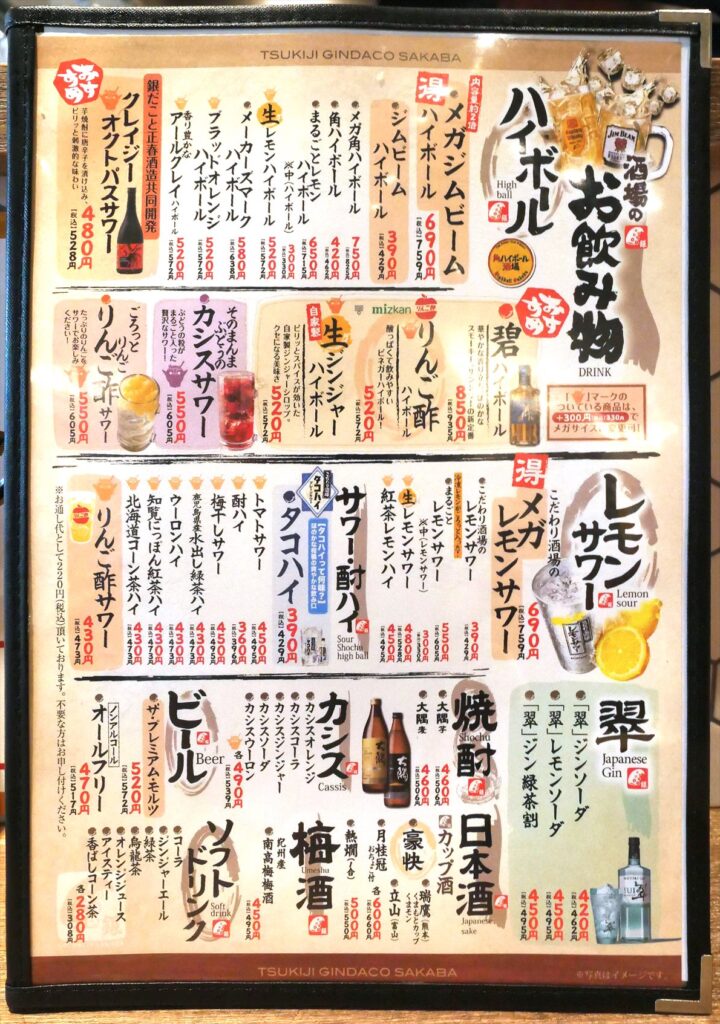 TSUKIJI GINDACO SAKABA
JIM BEAM
酒場の
お飲み物
DRINK
マークの
ついている商品は、
+300円(税込330円)で
ハイボール
High
ball
角ハイボール
酒場
内容量約2倍
得
メガジムビーム
ハイボール
690円
(税込)759円
ジムビーム
ハイボール
390円
(税込)429円
メガ角ハイボール
750円
角ハイボール
まるごとレモン
ハイボール
650円
(税込)715円
※中(ハイボール)
300円
(税込)330円
生レモンハイボール
520円
(税込)572円
メーカーズマーク
ハイボール
580円
(税込)638円
ブラッドオレンジ
ハイボール
520円
(税込)572円
香り豊かな
アールグレイハイボール
520円
(税込)572円
おすすめ
銀だこと正春酒造共同開発
クレイジー
オクトパスサワー
芋焼酎に唐辛子を漬け込み、
ピリッと刺激的な味わい
480円
(税込)528円
おすすめ
碧
ハイボール
(税込)935円
mizkan
りんご酢
ハイボール
酸っぱくて飲みやすい
ビネガーハイボール!
520円
(税込)572円
自家製
生ジンジャー
ハイボール
ピリッとスパイスが効いた
自家製ジンジャーシロップ。
クセになる美味さ
520円
(税込)572円
そのまんま
ぶどうの
カシスサワー
ぶどうの粒が
まるごと入った
贅沢なサワー!
550円
(税込)605円
ごろっと
りんご
りんご酢サワー
たっぷりのりんごを
サワーでお楽しみ
ください!
550円
(税込)605円
レモン
サワー
Lemon
sour
得
こだわり酒場の
メガ
レモンサワー
690円
(税込)759円
こだわり酒場の
レモンサワー
390円
(税込)429円
まるごと
レモンサワー
550円
(税込)605円
※中(レモンサワー)
300円
(税込)330円
生レモンサワー
480円
(税込)528円
紅茶レモンサワー
450円
(税込)495円
サワー・酎ハイ
Sour
Shochu
high ball
タコハイ
【タコハイって何味?】
ほのかな柑橘の爽やかな飲み口
390円
(税込)429円
トマトサワー
450円
(税込)495円
酎ハイ
360円
(税込)396円
梅干しサワー
450円
(税込)495円
鹿児島県産水出し緑茶ハイ
430円
(税込)473円
ウーロンハイ
430円
(税込)473円
知覧にっぽん紅茶ハイ
430円
(税込)473円
北海道コーン茶ハイ
430円
(税込)473円
りんご酢サワー
430円
(税込)473円
※お通し代として220円(税込)頂いております。不要な方はお申し付けください。
翠
Japanese
Gin
「翠」ジンソーダ
420円
(税込)462円
「翠」レモンソーダ
450円
(税込)495円
「翠」ジン 緑茶割
450円
(税込)495円
焼酎
Shochu
大隅 芋
460円
(税込)506円
大隅 麦
460円
(税込)506円
カシス
Cassis
カシスオレンジ
カシスコーラ
カシスジンジャー
カシスソーダ
カシスウーロン
各490円
(税込)539円
ビール
Beer
ザ・プレミアム・モルツ
520円
(税込)572円
ノンアルコール
オールフリー
470円
(税込)517円
日本酒
Japanese
sake
カップ酒
瑞鷹(熊本)
くまもとカップ
くまモン
立山(富山)
各600円
(税込)660円
豪快
月桂冠
おちょこ付
熱燗(一合)
500円
(税込)550円
梅酒
Umeshu
紀州産
南高梅梅酒
450円
(税込)495円
ソフト
ドリンク
Soft
drink
コーラ
ジンジャーエール
緑茶
烏龍茶
オレンジジュース
アイスティー
香ばしコーン茶
各280円
(税込)308円
TSUKIJI GINDACO SAKABA
※写真はイメージです。